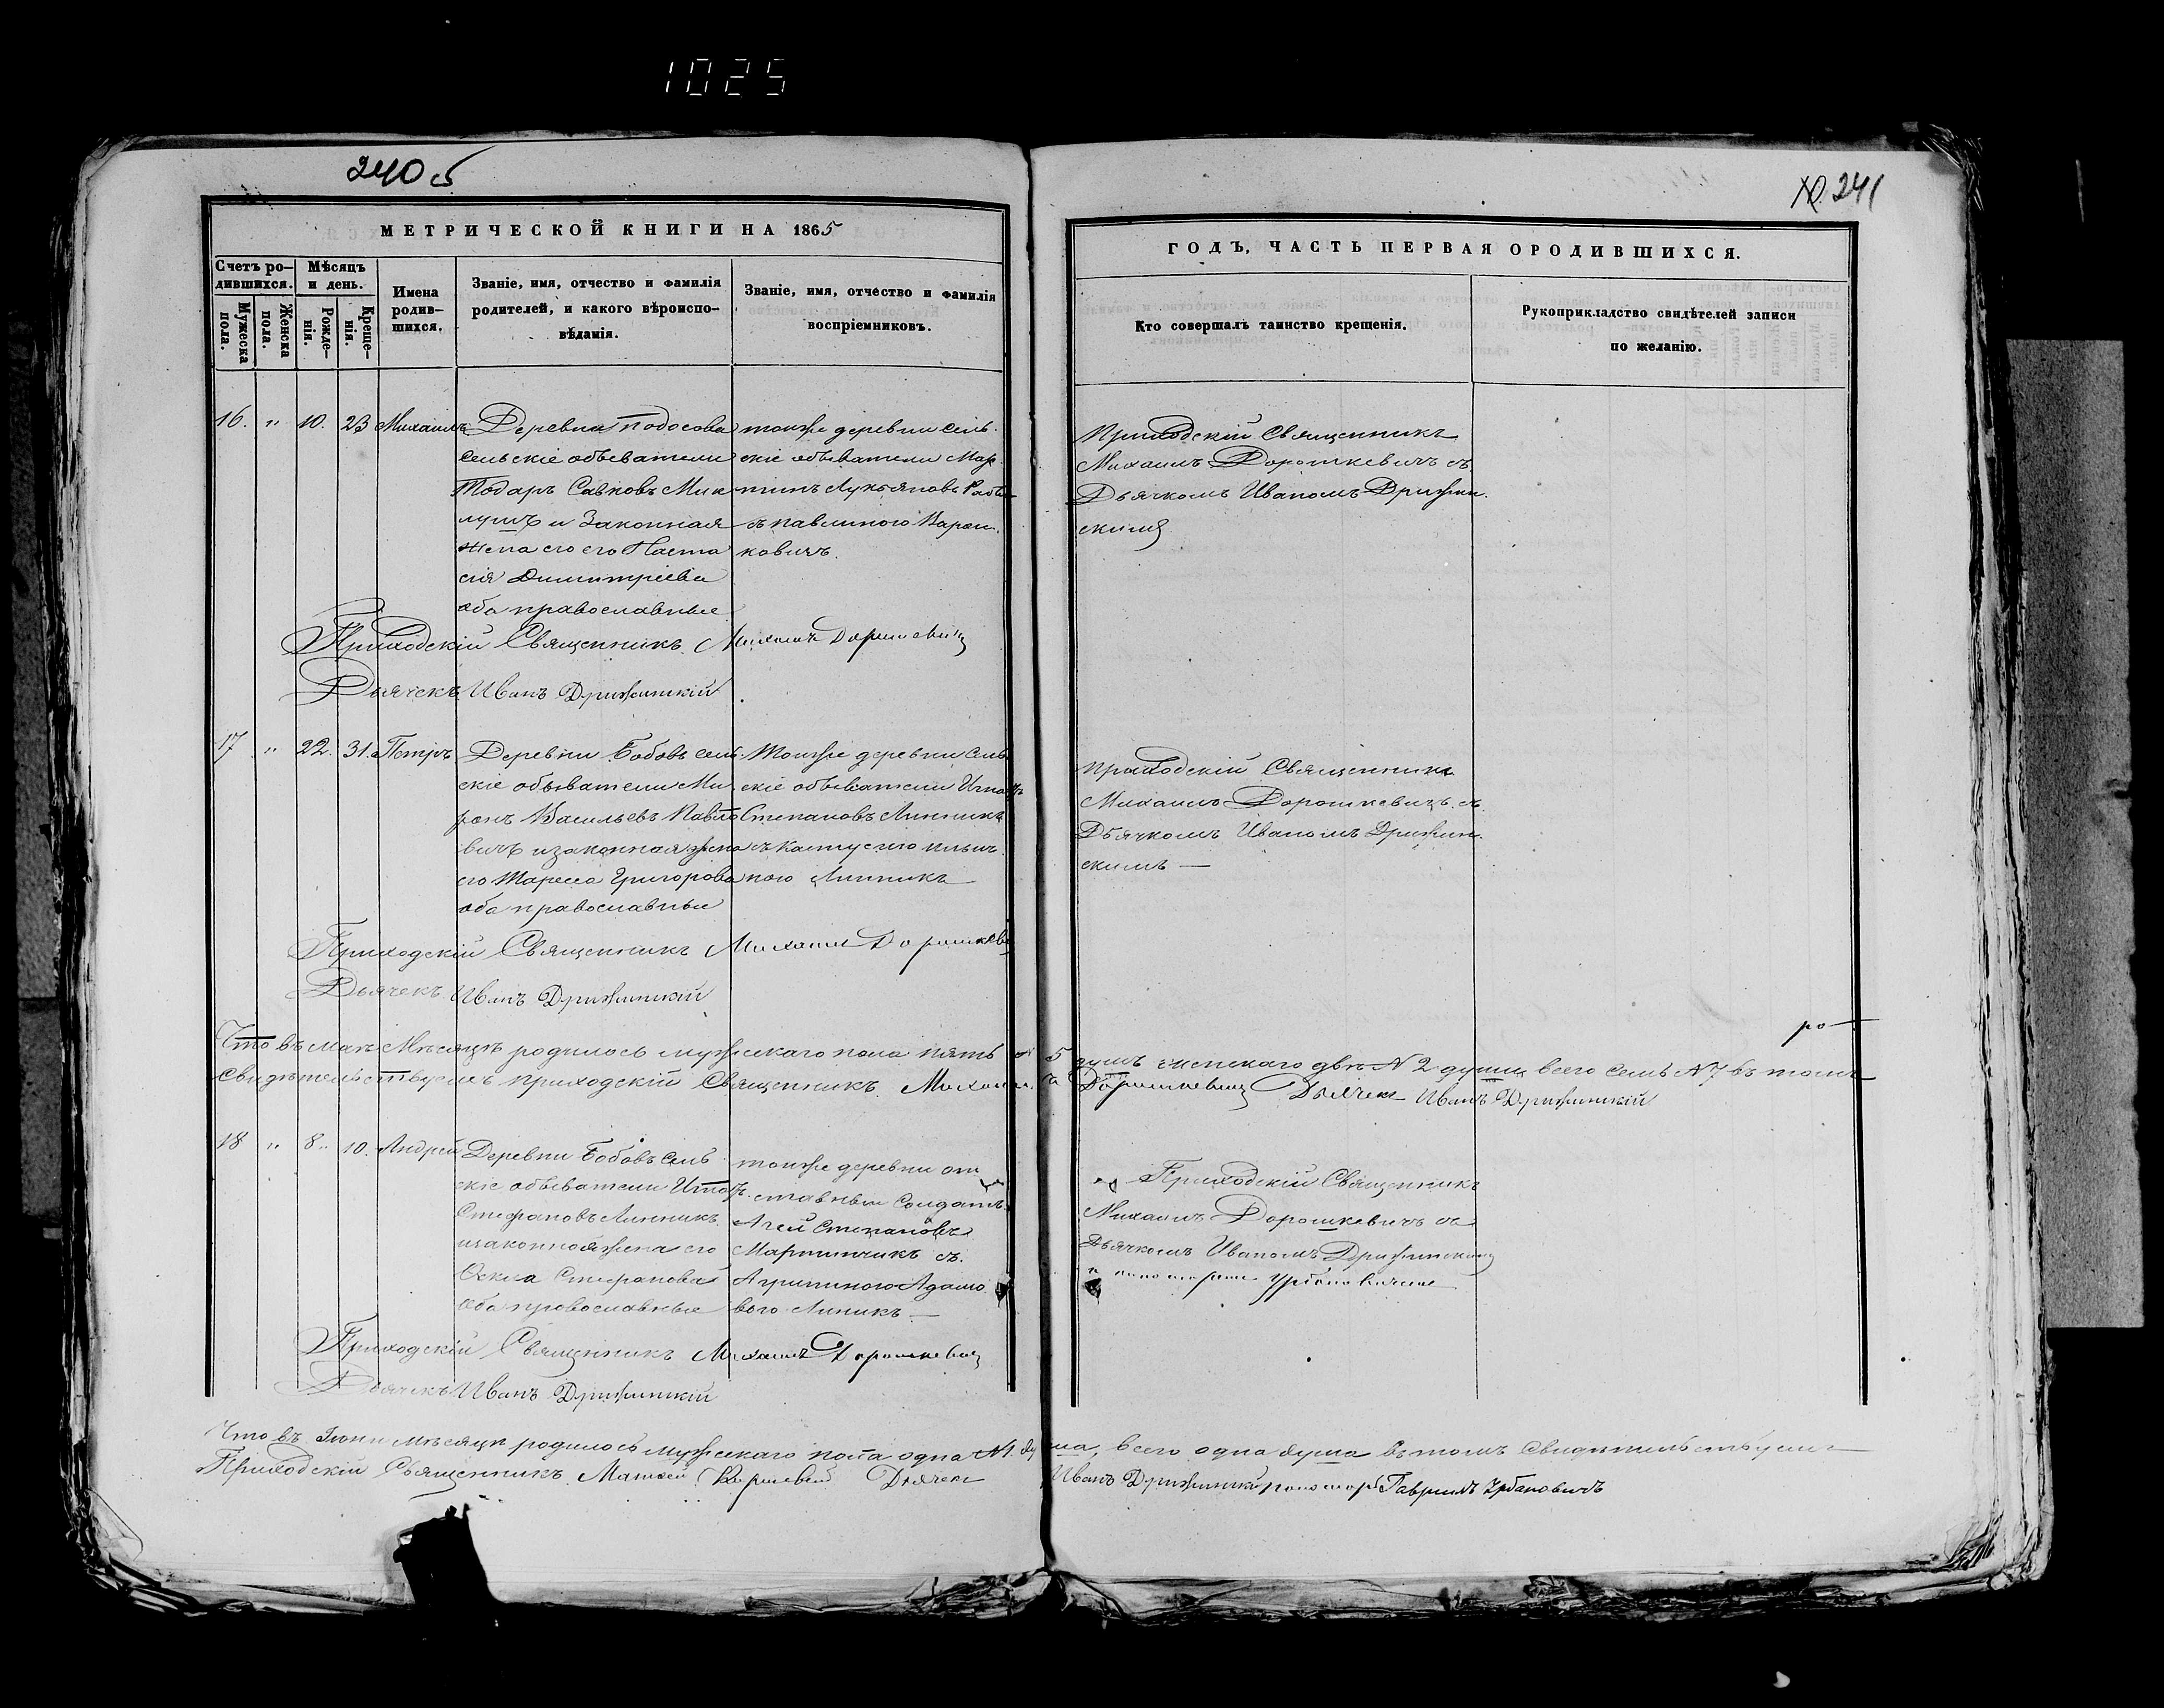 1025
240 об
241
МЕТРИЧЕСКОЙ КНИГИ НА 1865
ГОДЪ, ЧАСТЬ ПЕРВАЯ ОРОДИВШИХСЯ.
Счетъ ро-
дившихся.
Мужеска
пола.
Женска
пола.
Мѣсяцъ
и день.
Рожде-
нія.
Креще-
нія.
Имена
родив-
шихся.
Званіе, имя, отчество и фамилія
родителей, и какого вѣроиспо-
вѣданія.
Званіе, имя, отчество и фамилія
воспріемниковъ.
Кто совершалъ таинство крещенія.
Рукоприкладство свидѣтелей записи
по желанію.
16. " 10. 23 Михаилъ
Деревни Подосова
Сельскіе обыватели
Тодаръ Савковъ Мик
лушъ и Законная
жена его его Наста
сія Димитріева
оба православные
тойже деревни сель-
скіе обыватели Мар-
тинъ Лукьяновъ
съ Павлиного Варон-
ковичъ.
Приходскій Священникъ
Михаилъ Дорошкевичъ съ
Дьячкомъ Иваномъ Дрижин-
скимъ
Приходскій Священникъ Михаилъ Дорошкевичъ
Дьячекъ Иванъ Дрижинскій
17 " 22. 31. Петръ
Деревни Бобовъ сель-
скіе обыватели Ми-
ронъ Васильевъ Павло
вичъ и законная жена
его Мареса Григорова
оба православные
Тойже деревни сель
скіе обыватели Игнатъ
Степановъ Линникъ
ною Линникъ
Приходскій Священникъ
Михаилъ Дорошкевичъ съ
Дьячкомъ Иваномъ Дрижин-
скимъ —
Приходскій Священникъ Михаилъ Дорошкевичъ
Дьячекъ Иванъ Дрижинскій
ро
Что въ маѣ Мѣсяцѣ родилось мужескаго пола пять № 5 душъ женскаго двѣ № 2 души всего семь № 7 въ томъ
Свидѣтельствуемъ приходскій Священникъ Михаилъ Дорошкевичъ Дьячекъ Иванъ Дрижинскій
18 " 8. 10. Андрей
Деревни Бобовъ Сель
скіе обыватели Игнатъ
Стефановъ Линникъ
изаконнояжена его
Стефанова
оба православные
тойже деревни от
ставный Солдатъ
Степановъ
Мартинчикъ съ
Агрипиного Адамо
вого Линикъ —
Приходскій Священникъ
Михаилъ Дорошкевичъ съ
Дьячкомъ Иваномъ Дрижинскимъ
и пономаремъ Урбановичемъ
Приходскій Священникъ Михаилъ Дорошкевичъ
Дьячекъ Иванъ Дрижинскій
Что въ Іюнѣ мѣсяцѣ родилось мужескаго пола одна №1. душа, всего одна душа въ томъ свидѣтельствуемъ
Приходскій Священникъ Дьячекъ Иванъ Дрижинскій пономарь Гавріилъ Урбановичъ